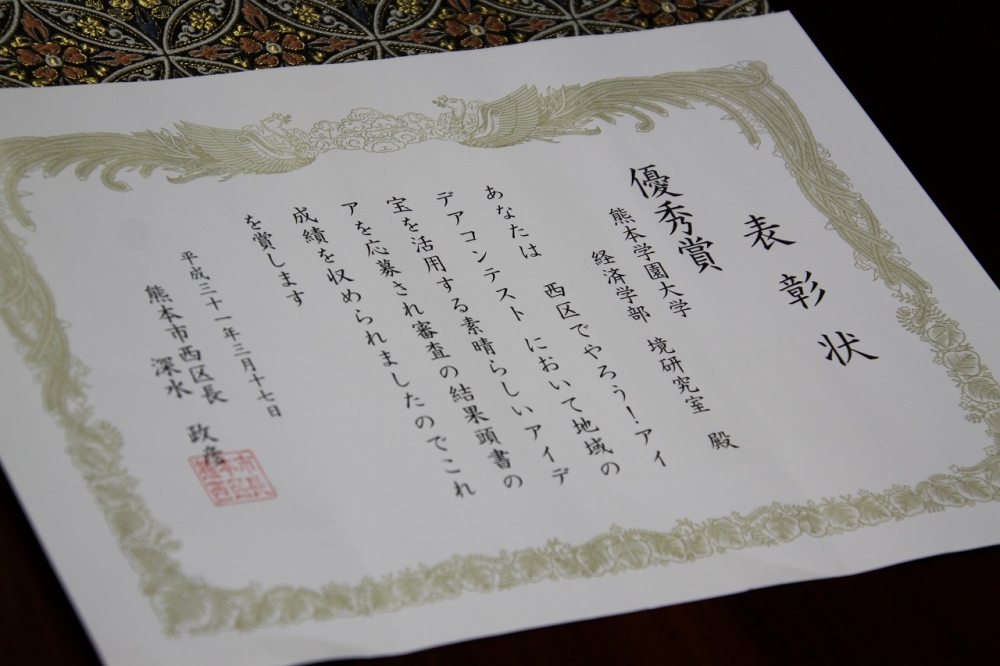 表彰状
優秀賞
熊本学園大学
経済学部 境研究室 殿
あなたは 西区でやろう！アイ
デアコンテストにおいて地域の
宝を活用する素晴らしいアイデ
アを応募され審査の結果頭書の
成績を収められましたのでこれ
を賞します
平成三十一年三月十七日
熊本市西区長
深水 政彦